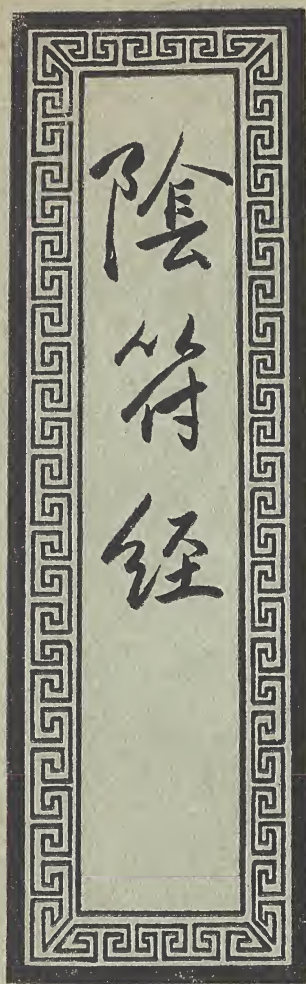 陰符經